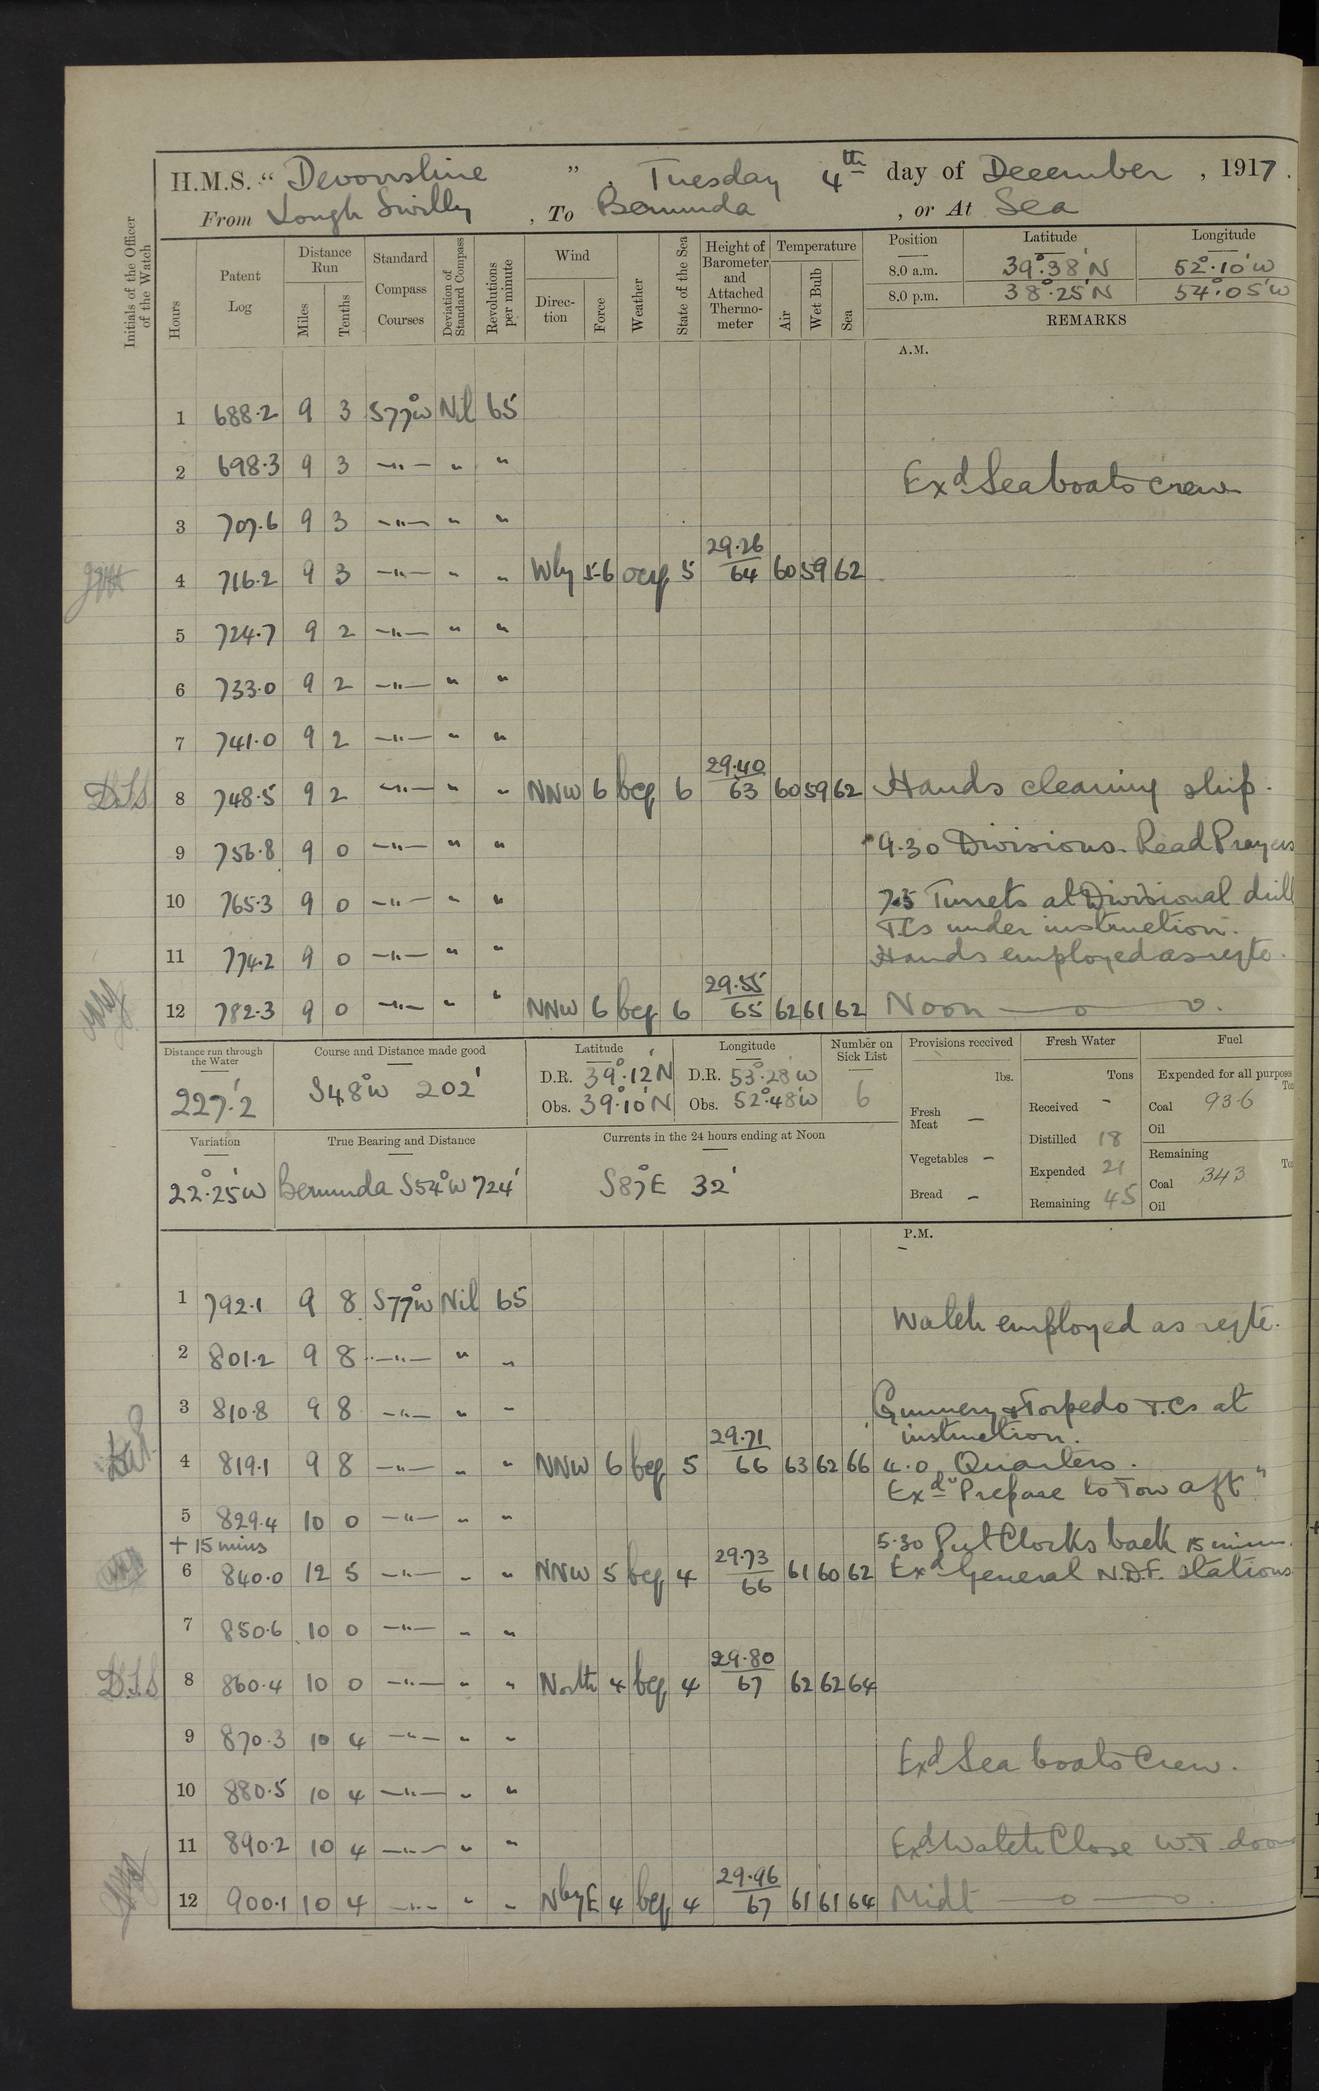 H.M.S. “ Devonshire ” , Tuesday 4th day of December , 1917.
From Lough Swilly , To Bermuda , or At Sea
Initials of the Officer of the Watch
Hours
Patent Log
Distance Run
Miles
Tenths
Standard Compass Courses
Deviation of Standard Compass
Revolutions per minute
Wind
Direction
Force
Weather
State of the Sea
Height of Barometer and Attached Thermometer
Temperature
Air
Wet Bulb
Sea
Position Latitude Longitude
8.0 a.m. 39°.38'N 52°.10'W
8.0 p.m. 38°.25'N 54°.05'W
REMARKS
A.M.
1 688.2 9 3 S77°W Nil 65
2 698.3 9 3 —"— " " Exd Seaboats crew
3 707.6 9 3 —"— " "
4 716.2 9 3 —"— " " Wly 5-6 ocq 5 29.26/64 60 59 62
5 724.7 9 2 —"— " "
6 733.0 9 2 —"— " "
7 741.0 9 2 —"— " "
DSS 8 748.5 9 2 —"— " " NNW 6 bcq 6 29.40/63 60 59 62 Hands cleaning ship.
9 756.8 9 0 —"— " " 9.30 Divisions. Read Prayers
10 765.3 9 0 —"— " " 7.5 Turrets at Divisional drill
T.Cs under instruction.
11 774.2 9 0 —"— " " Hands employed as reqte.
12 782.3 9 0 —"— " " NNW 6 bcq 6 29.55/65 62 61 62 Noon —o—o.
Distance run through the Water
227'.2
Course and Distance made good
S48°W 202'
Latitude
D.R. 39°.12'N
Obs. 39°.10'N
Longitude
D.R. 53°.28'W
Obs. 52°.48'W
Number on Sick List
6
Provisions received
lbs.
Fresh Meat —
Vegetables —
Bread —
Fresh Water
Tons
Received -
Distilled 18
Expended 21
Remaining 45
Fuel
Expended for all purpose
Coal 93.6
Oil
Remaining
Coal 343
Oil
Variation
22°.25'W
True Bearing and Distance
Bermuda S54°W 724'
Currents in the 24 hours ending at Noon
S87°E 32'
P.M.
1 792.1 9 8 S77°W Nil 65
Watch employed as reqte.
2 801.2 9 8 —"— " "
3 810.8 9 8 —"— " " Gunnery & Torpedo T.Cs at
instruction.
4 819.1 9 8 —"— " " NNW 6 bcq 5 29.71/66 63 62 66 4.0 Quarters.
Exd "Prepare to Tow aft"
5 829.4 10 0 —"— " "
+ 15 mins 5.30 Put Clocks back 15 mins.
6 840.0 12 5 —"— " " NNW 5 bcq 4 29.73/66 61 60 62 Exd General N.D.F. stations
7 850.6 10 0 —"— " "
DSS 8 860.4 10 0 —"— " " North 4 bcq 4 29.80/67 62 62 64
9 870.3 10 4 —"— " "
Exd Sea boats Crew.
10 880.5 10 4 —"— " "
11 890.2 10 4 —"— " " Exd Watch Close W.T. doors
12 900.1 10 4 —"— " " NbyE 4 bcq 4 29.96/67 61 61 64 Midt —o—o.